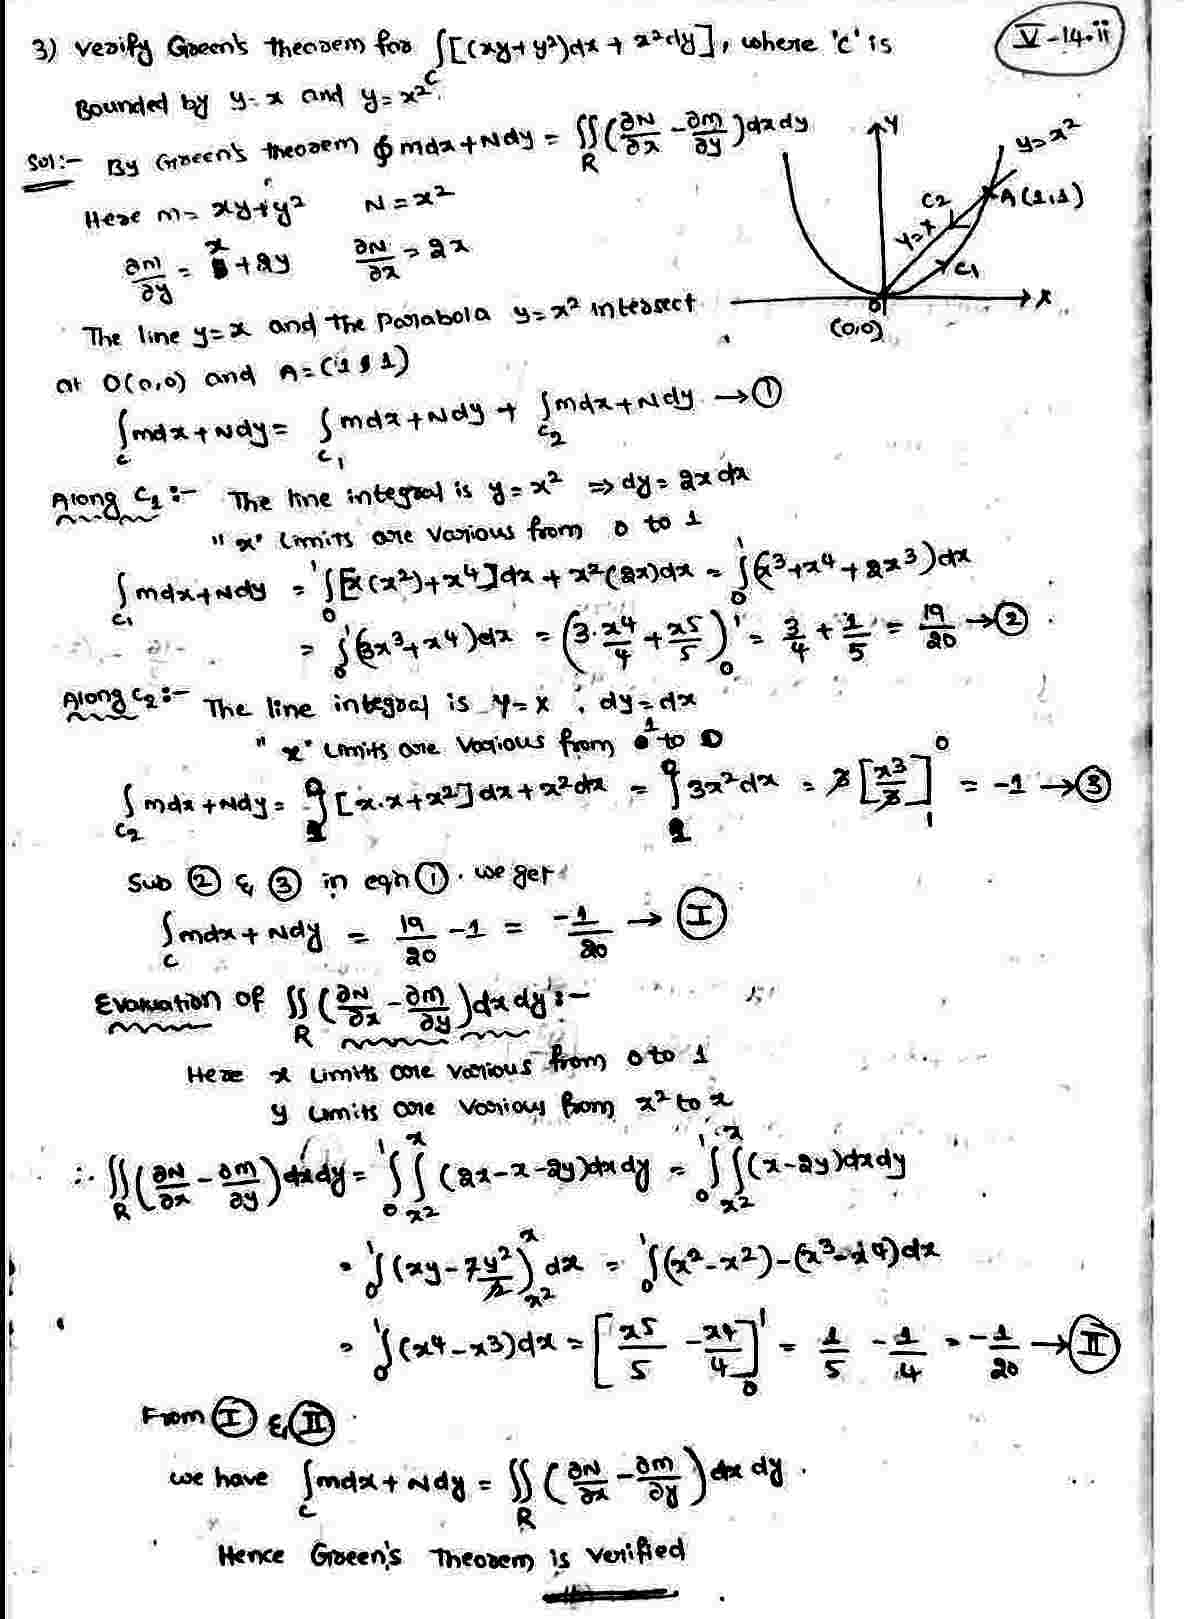 3) Verify Green's theorem for ∫_C [(xy+y²)dx + x²dy], where 'c' is
V-14.ii
Bounded by y=x and y=x².
Sol:- By Green's theorem ∮ mdx+Ndy = ∬_R (∂N/∂x - ∂m/∂y) dxdy
Here m= xy+y² N=x²
∂m/∂y = x+2y ∂N/∂x = 2x
Y
y=x²
A(1,1)
C2
y=x
C1
X
0
(0,0)
The line y=x and the Parabola y=x² intersect
at O(0,0) and A=(1,1)
∫_c mdx+Ndy = ∫_c₁ mdx+Ndy + ∫_c₂ mdx+Ndy → ①
Along C₁:- The line integral is y=x² ⇒ dy=2x dx
"x" Limits are various from 0 to 1
∫_c₁ mdx+Ndy = ∫₀¹ [x(x²)+x⁴]dx + x²(2x)dx = ∫₀¹ (x³+x⁴+2x³)dx
= ∫₀¹ (3x³+x⁴)dx = (3·x⁴/4 + x⁵/5)₀¹ = 3/4 + 1/5 = 19/20 → ②
Along C₂:- The line integral is y=x, dy=dx
"x" Limits are various from 1 to 0
∫_c₂ mdx+Ndy = ∫₁⁰ [x.x+x²]dx+x²dx = ∫₁⁰ 3x²dx = 3[x³/3]₁⁰ = -1 → ③
Sub ② & ③ in eqn ①. we get
∫_c mdx+Ndy = 19/20 -1 = -1/20 → Ⅰ
Evaluation of ∬_R (∂N/∂x - ∂m/∂y) dxdy:-
Here x Limits are various from 0 to 1
y Limits are various from x² to x
∴ ∬_R (∂N/∂x - ∂m/∂y) dxdy = ∫₀¹ ∫_x²^x (2x-x-2y)dxdy = ∫₀¹ ∫_x²^x (x-2y)dxdy
= ∫₀¹ (xy-2y²/2)_x²^x dx = ∫₀¹ (x²-x²)-(x³-x⁴)dx
= ∫₀¹ (x⁴-x³)dx = [x⁵/5 - x⁴/4]₀¹ = 1/5 - 1/4 = -1/20 → Ⅱ
From Ⅰ & Ⅱ
we have ∫_c mdx+Ndy = ∬_R (∂N/∂x - ∂m/∂y) dx dy.
Hence Green's Theorem is verified